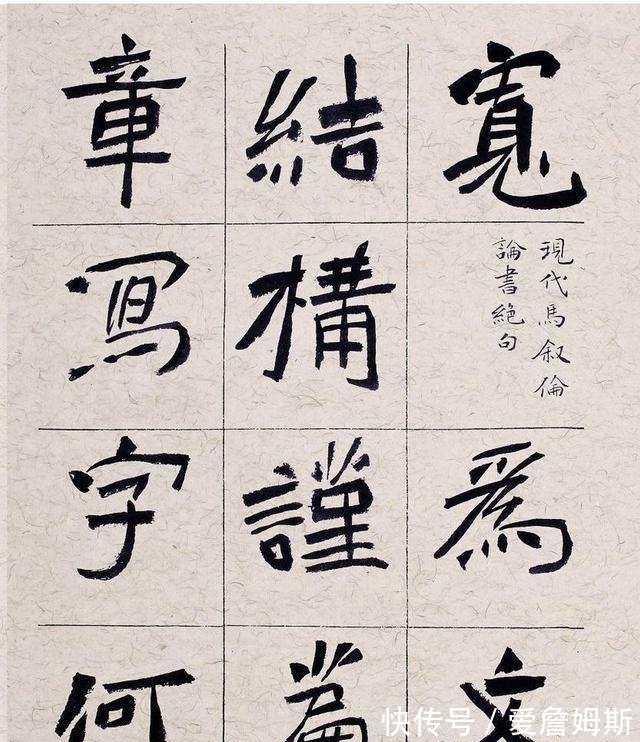 寬
現代馬叙倫
論書絶句
爲文
結構謹篇
章冩字何
快传号／爱詹姆斯